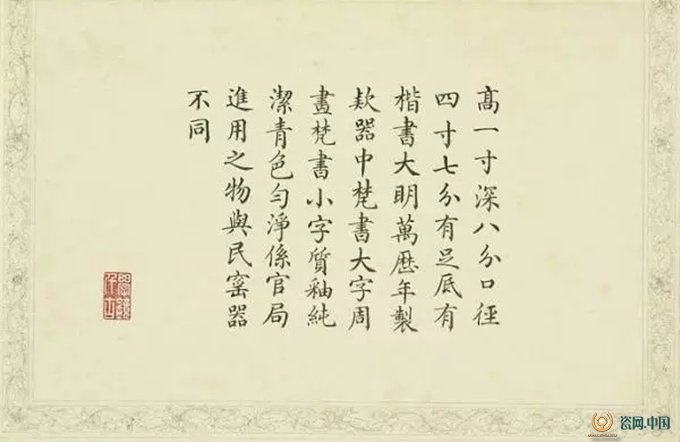 高一寸深八分口徑
四寸七分有足底有
楷書大明萬歷年製
欵器中梵書大字周
畫梵書小字質釉純
潔青色勻淨係官局
進用之物與民窑器
不同
瓷网.中国